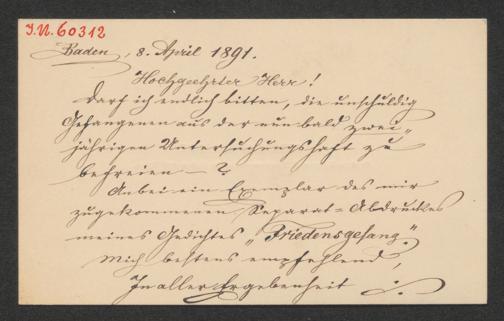 I.N. 60312
Baden, 8. April 1891.
Hochgeehrter Herr!
Darf ich endlich bitten, die unschuldig
Gefangenen aus der nun bald zwei-
jährigen Untersuchungshaft zu
befreien — ?
Anbei ein Exemplar des mir
zugekommenen Separat-Abdruckes
meines Gedichtes „Friedensgesang".
Mich bestens empfehlend,
In aller Ergebenheit